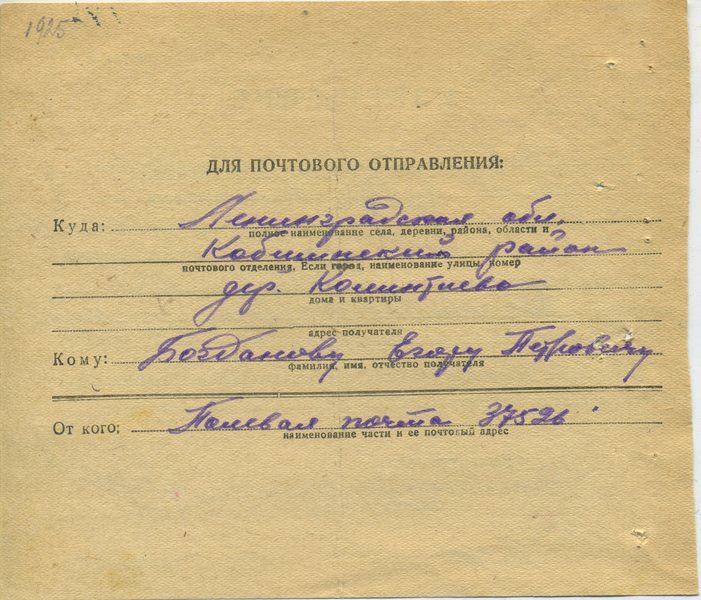 1925
ДЛЯ ПОЧТОВОГО ОТПРАВЛЕНИЯ:
Куда: Ленинградская обл.
полное наименование села, деревни, района, области и
район
почтового отделения. Если город, наименование улицы, номер
дер.
дома и квартиры
адрес получателя
Кому: Богданову Егору Петровичу
фамилия, имя, отчество получателя
От кого: Полевая почта 37526
наименование части и ее почтовый адрес